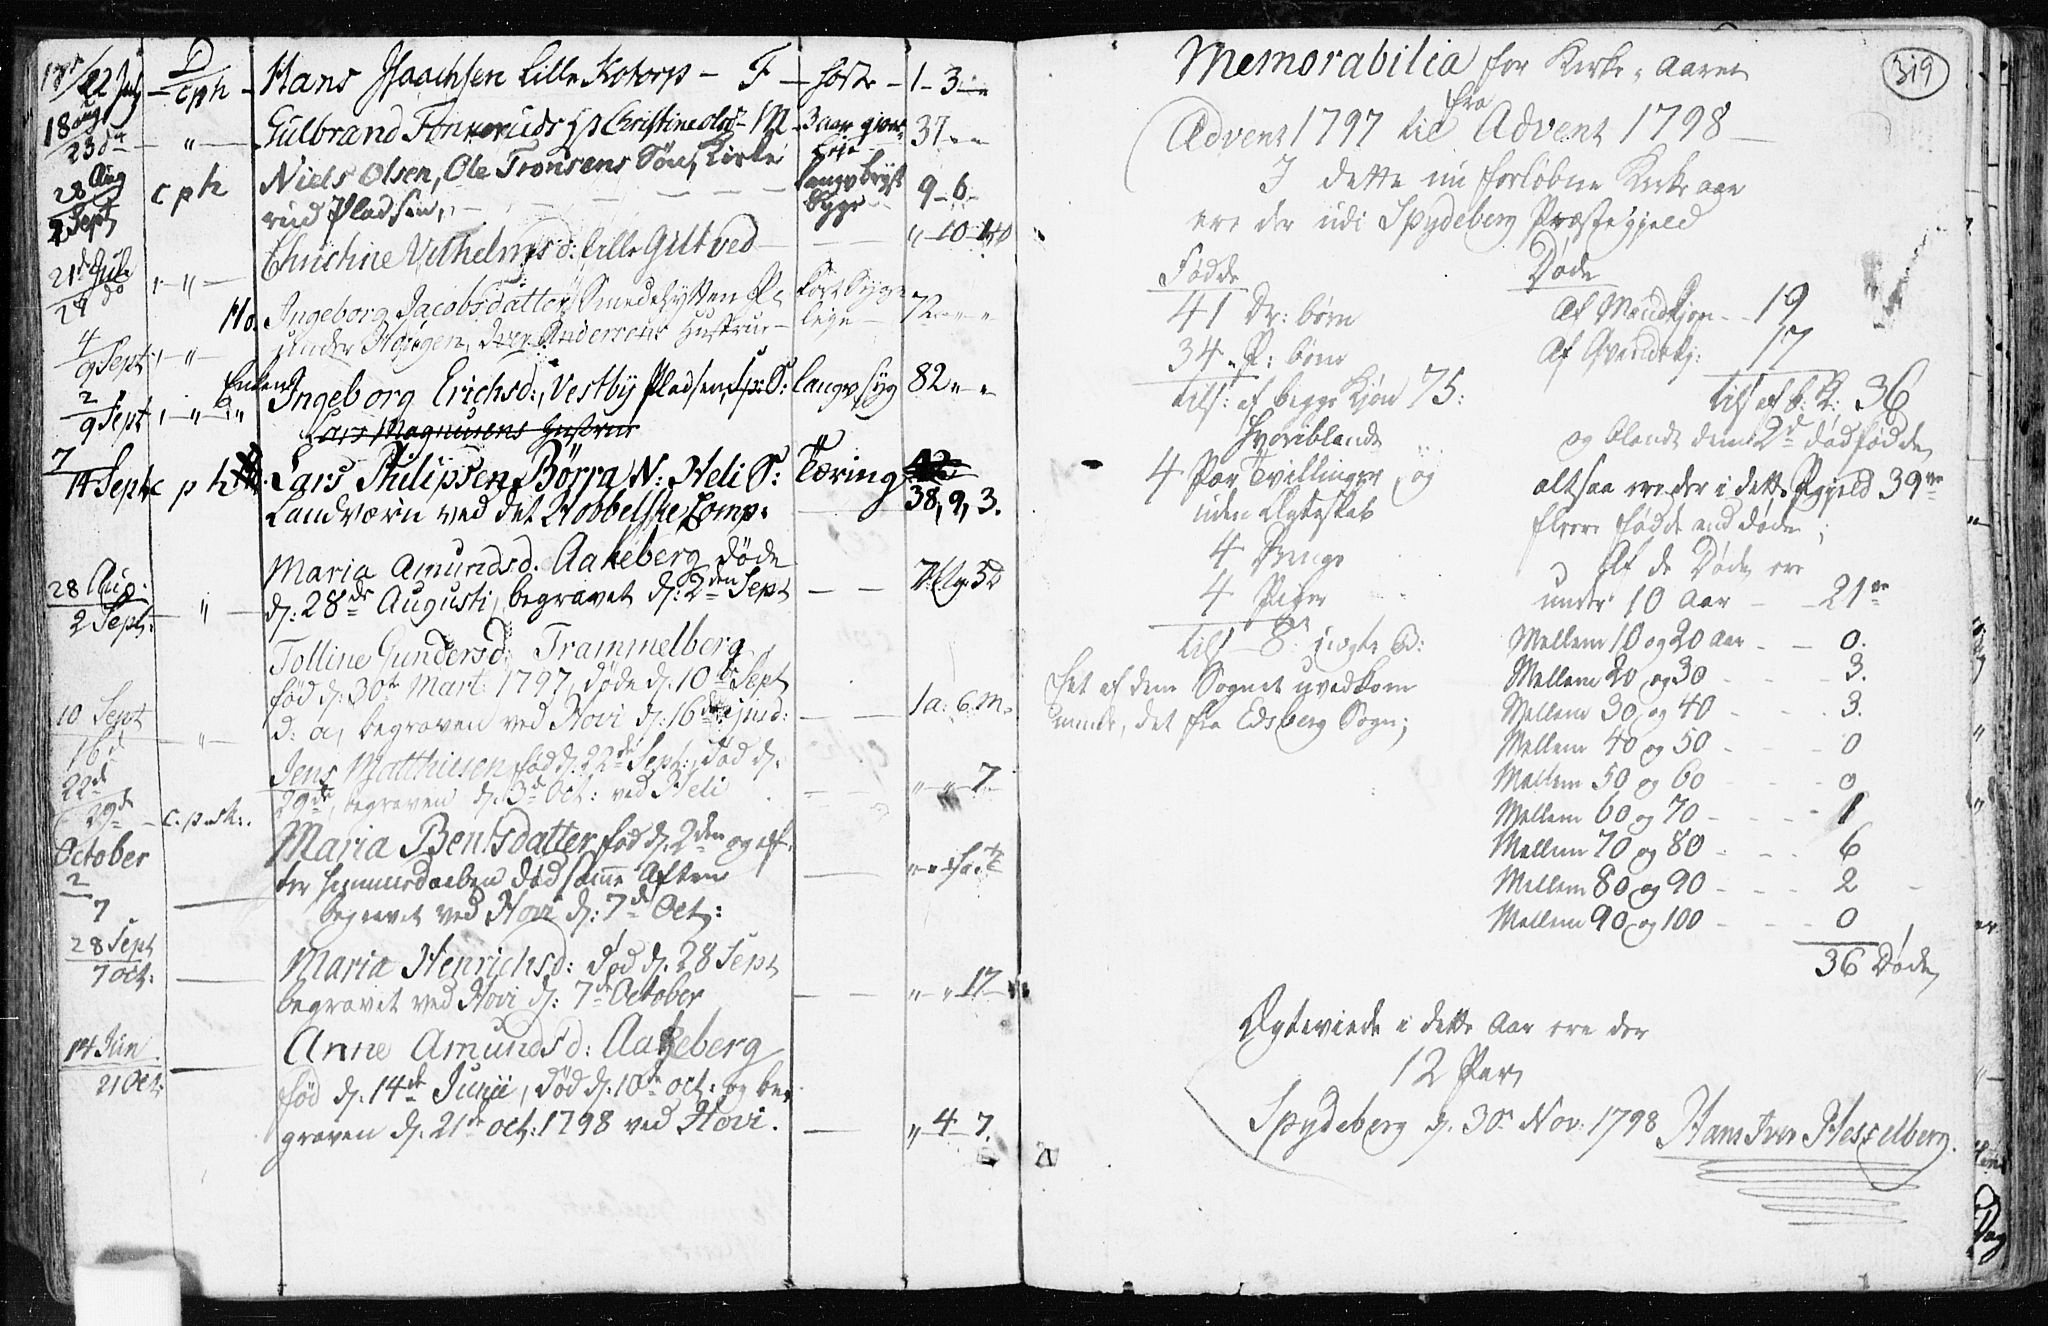 17de/22 July – cph – Hans Isaachsen Lille Kotorp – F – hoste – 1 – 3 –
18 aug / 23 do – " – Gulbrand Christine M – 3 aar 37 " "
28 Aug / 2 Sept c p h Niels Olsen, Ole Tronsens Søn, Kirke
rud Pladsen, – – – – langv bryst Syge – 9 – 6 –
21 d Jul / 28 do " – Christine Vilhelmsd: lille Giltved – – " – 10 –
4 / 9 Sept – " – Mo. Ingeborg Jacobsdatter, Smedehytten
under Iver Andersens Hustrue – 72 " "
2 / 9 Sept – " – Enken Ingeborg Erichsd:, Vestby Pladsen, S: langv syg 82 " "
Lars Magnusens Hustrue
7 / 14 Sept c p h Lars Philipsen, Børra N: Heli S: Tæring 42
Landværn ved det Hobbelske Comp: – 38, 9, 3.
28 Aug: / 2 Sept: – " – Maria Amundsd. Aakeberg døde
d: 28de Augusti, begravet d: 2den Sept – –
Tolline Gundersd: Trammelberg
fød d: 30te Mart: 1797, døde d: 10de Sept
10 Sept / 16 d – " – d: a, begraven ved Hovi d: 16de ejusd: – – 1 a: 6 M.
22d / 29d – c.p.h: Jens Matthiesen, fød d. 22de Sept:, død d:
29de, begraven d: 3de Oct: ved Heli – – " – " 7
October 2 / 7 – Maria Bentsdatter fød d. 2den og ef-
ter hjemmedaaben død samme Aften
begravet ved Hovi d: 7de Oct:
28 Sept / 7 Oct: – Maria Henrichsd: død d. 28 Sept
begravet ved Hovi d: 7de October – – " – " 17 –
14 Jun / 21 Oct: – Anne Amundsd: Aakeberg
fød d: 14de Junii, død d: 10de Oct: og be-
graven d: 21de Oct: 1798 ved Hovi. – " 4 – 7.
319
Memorabilia for Kirke-Aaret
fra
Advent 1797 til Advent 1798 –
I dette nu forløbne Kirke aar
ere der udi Spydeberg Præstegjeld
Fødde
41 Dr: børn
34 P: børn
tils: af begge Kjøn 75:
hvoriblandt
4 Par Tvillinger, og
uden Ægteskab
4 Drenge
4 Piger
tils – 8 uægte B:
Het af dem Sognet uvedkom
mende, det fra Edsberg Sogn;
Døde
Af Mandkjøn – – 19
Af Qvindekj: 17
tils af b: K: 36
og blandt dem 2de dødfødde
altsaa ere der i dette Pgjeld 39ve
fleere fødde end døde;
Af de Døde ere
under 10 Aar – – 21ve
Mellem 10 og 20 aar – – 0.
Mellem 20 og 30 – – – 3.
Mellem 30 og 40 – – – 3.
Mellem 40 og 50 – – – 0
Mellem 50 og 60 – – – 0
Mellem 60 og 70 – – – 1
Mellem 70 og 80 – – – 6
Mellem 80 og 90 – – – 2
Mellem 90 og 100 – – – 0
36 Døde
Ægteviede i dette Aar ere der
12 Par
Spydeberg d. 30 Nov: 1798 Hans Iver Hesselberg.